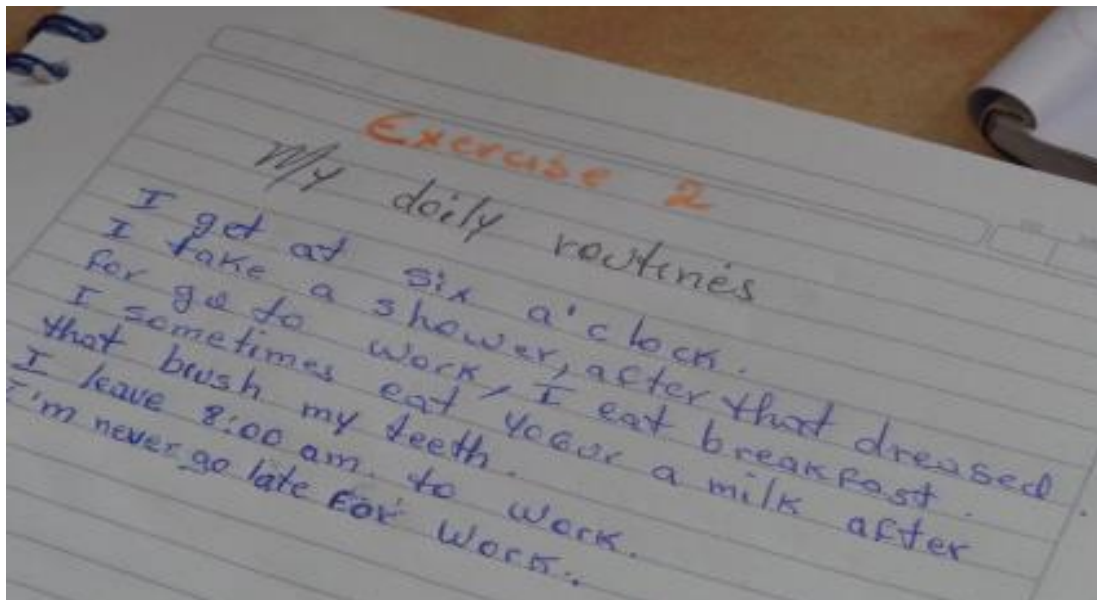 Exercise 2
My daily routines
I get at six a'clock.
I take a shower, after that dressed
for go to work, I eat breakfast.
I sometimes eat a milk after
that brush my teeth.
I leave 8:00 am. to work.
I'm never go late For work.